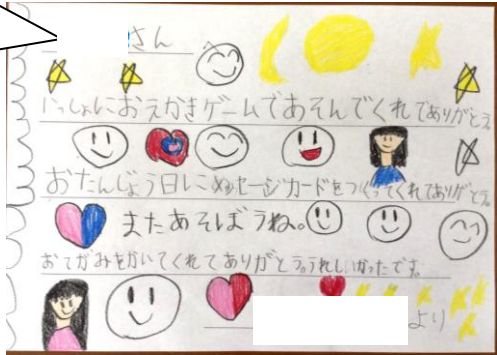 さん
いっしょにおえかきゲームであそんでくれてありがとう
おたんじょう日にめっセージカードをつくってくれてありがとう。
またあそぼうね。
おてがみをかいてくれてありがとう。うれしいかったです。
より